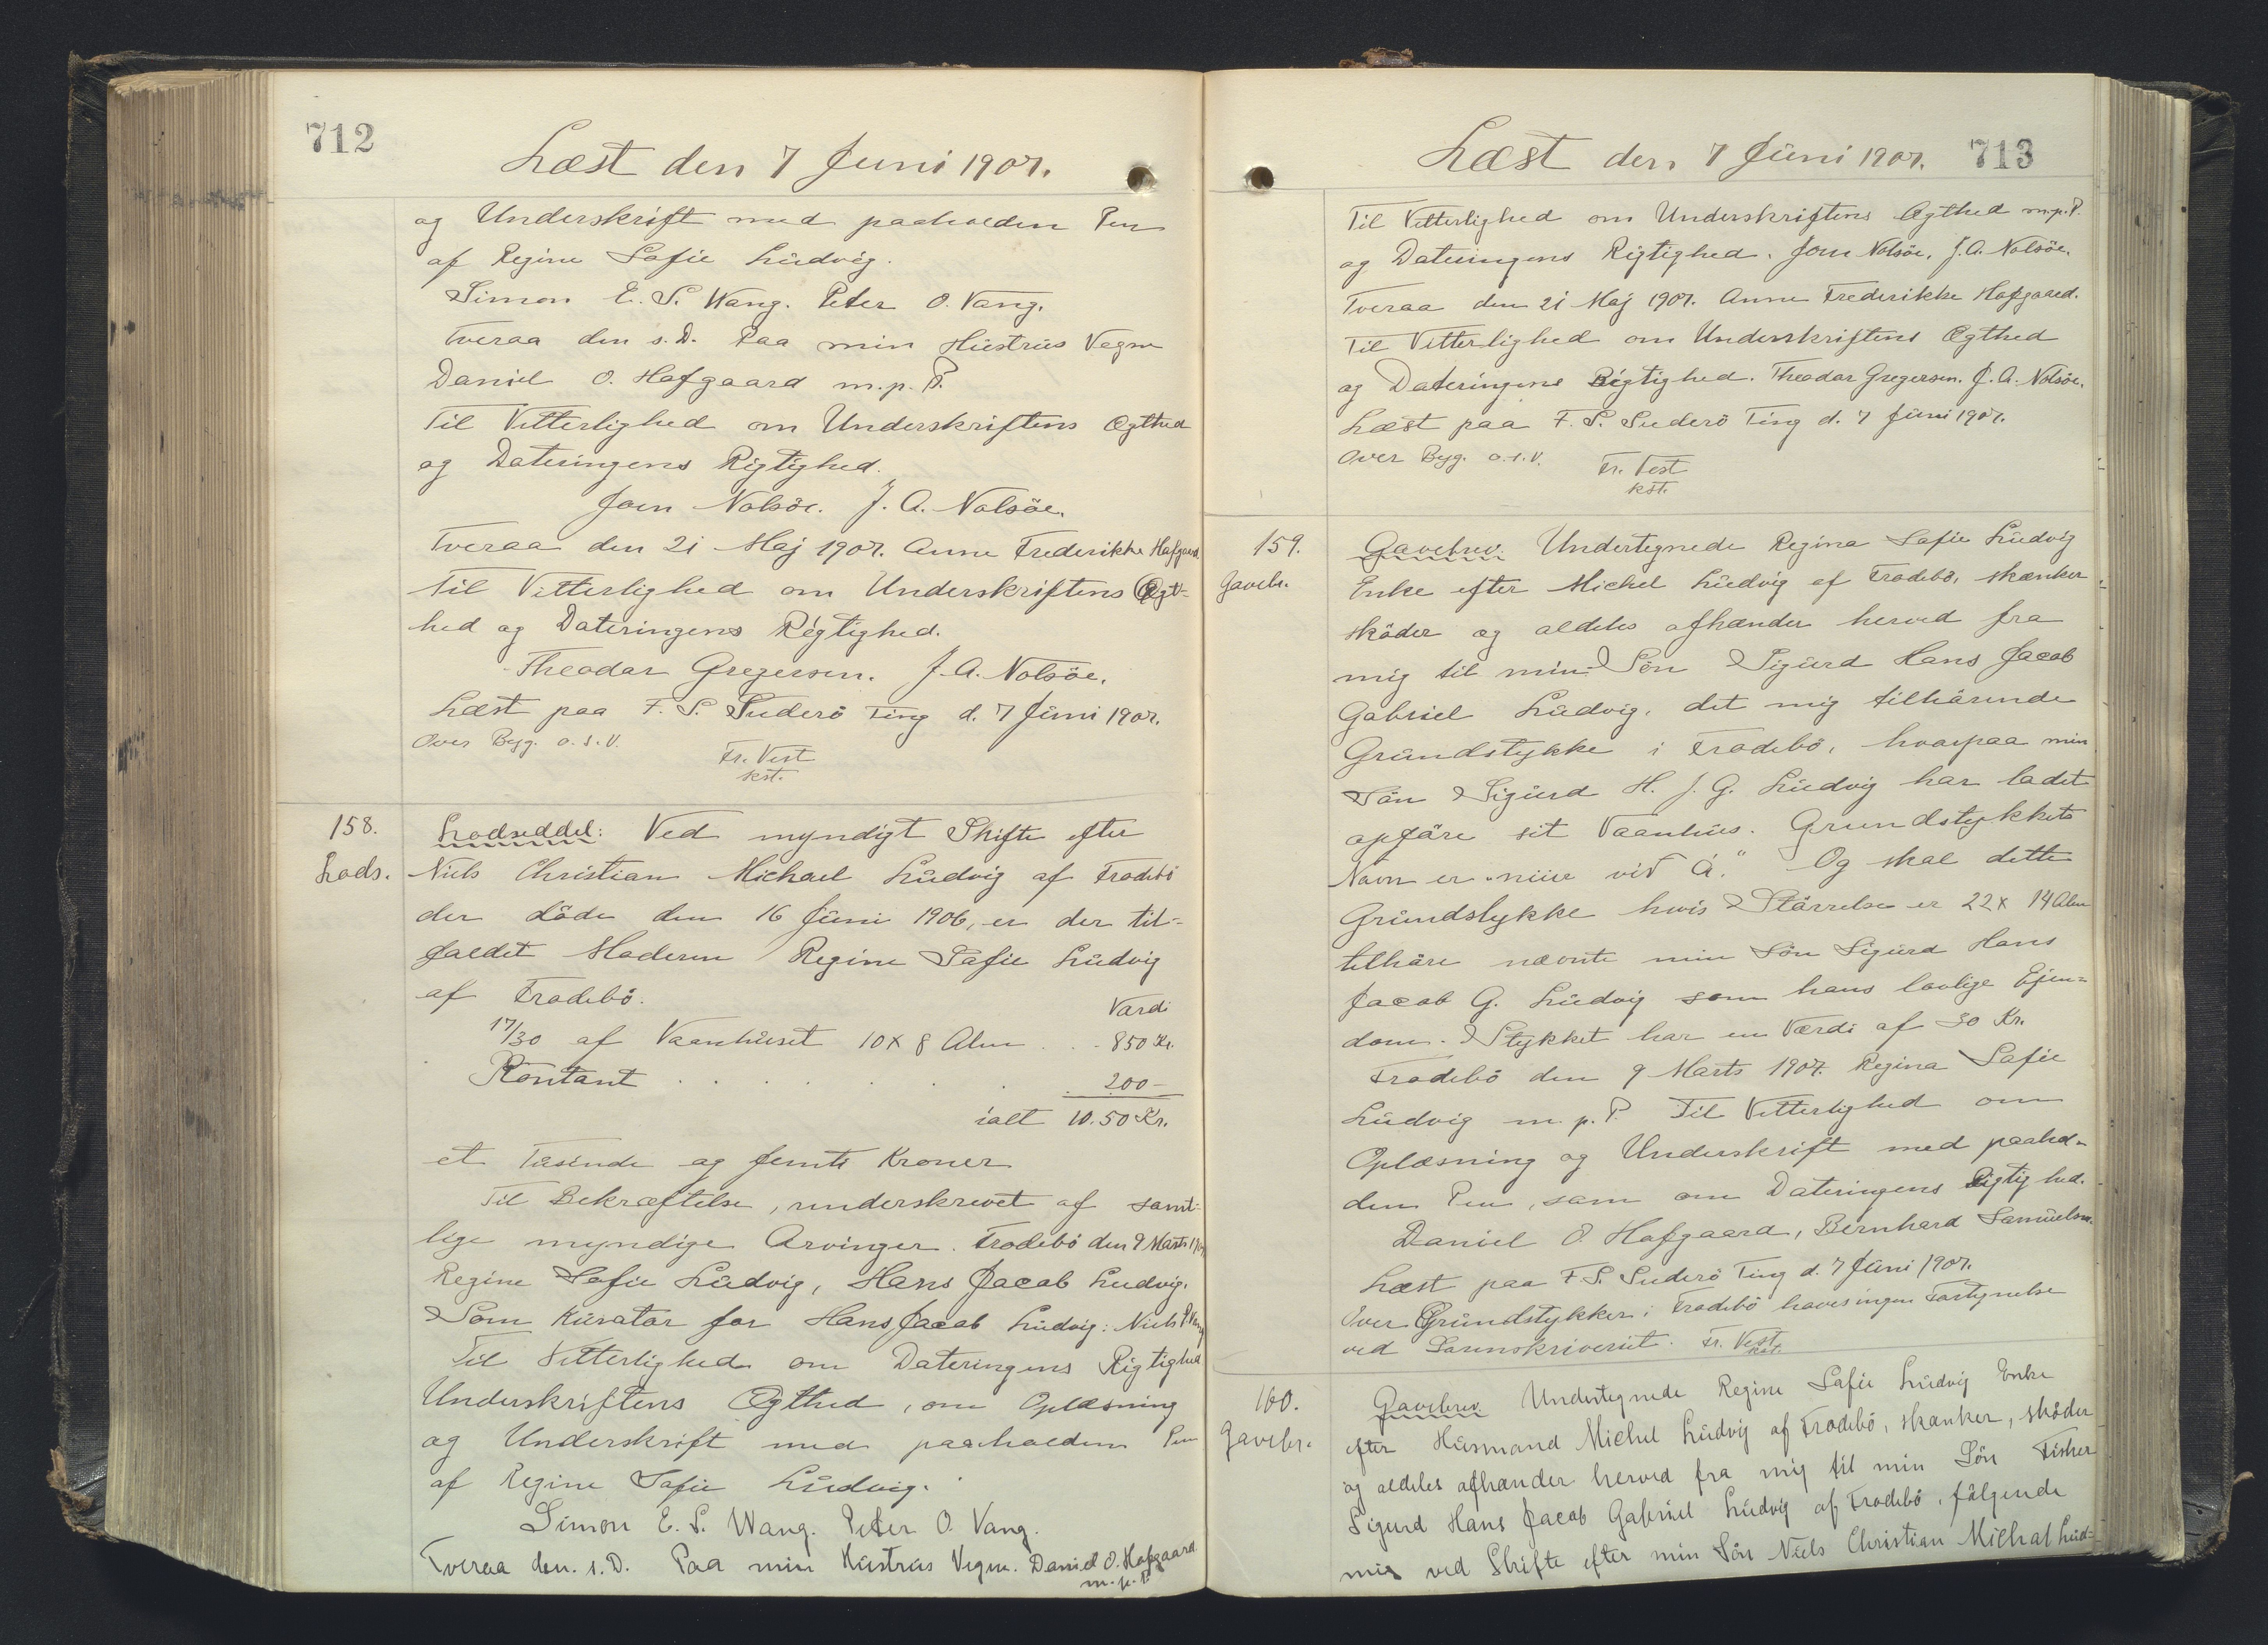 712
Læst den 7 Juni 1907.
og Underskrift med paaholden Pen
af Regine Sofie Ludvig.
Simon E. S. Wang. Peter O. Vang.
Tveraa den s. D. Paa min Hustrus Vegne
Daniel O. Hofgaard m.p.P.
Til Vitterlighed om Underskriftens Ægthed
og Dateringens Rigtighed.
Joen Nolsöe. J. A. Nolsöe.
Tveraa den 21 Maj 1907. Anne Frederikke Hofgaard
Til Vitterlighed om Underskriftens Ægt-
hed og Dateringens Rigtighed.
Theodor Gregersen. J. A. Nolsöe.
Læst paa F. S. Suderö Ting d. 7 Juni 1907.
Over Byg. o.s.v.
Fr. Vest
kst.
158.
Lods.
Lodseddel: Ved myndigt Skifte efter
Niels Christian Michael Ludvig af Frodebö
der döde den 16 Juni 1906, er der til-
faldet Moderen Regine Sofie Ludvig
af Frodebö.
Værdi
17/30 af Vaanhuset 10 x 8 Alen . . 850 Kr.
Kontant . . . . . . 200 -
ialt 10.50 Kr.
et Tusinde og femti Kroner
Til Bekræftelse, underskrevet af samt-
lige myndige Arvinger. Frodebö den 9 Marts 1907
Regine Sofie Ludvig, Hans Jacob Ludvig.
Som Kurator for Hans Jacob Ludvig: Niels P. Vang
Til Vitterlighed om Dateringens Rigtighed
Underskriftens Ægthed, om Oplæsning
og Underskrift med paaholden Pen
af Regine Sofie Ludvig.
Simon E. S. Wang. Peter O. Vang.
Tveraa den. s. D. Paa min Hustrus Vegne. Daniel O. Hofgaard
m.p.P.
Læst den 7 Juni 1907. 713
Til Vitterlighed om Underskriftens Ægthed m.p.P.
og Dateringens Rigtighed. Joen Nolsöe, J. A. Nolsöe.
Tveraa den 21 Maj 1907. Anne Frederikke Hofgaard.
Til Vitterlighed om Underskriftens Ægthed
og Dateringens Rigtighed. Theodor Gregersen. J. A. Nolsöe.
Læst paa F. S. Suderö Ting d. 7 Juni 1907.
Over Byg. o.s.v.
Fr. Vest
kst.
159.
Gavebr.
Gavebrev. Undertegnede Regina Sofie Ludvig
Enke efter Michel Ludvig af Frodebö, skænker
sköder og aldeles afhænder herved fra
mig til min Sön Sigurd Hans Jacob
Gabriel Ludvig, det mig tilhörende
Grundstykke i Frodebö, hvorpaa min
Sön Sigurd H. J. G. Ludvig har ladet
opföre sit Vaanhus. Grundstykkets
Navn er „niur við Á." Og skal dette
Grundstykke hvis Störrelse er 22 x 14 Alen
tilhöre nævnte min Sön Sigurd Hans
Jacob G. Ludvig som hans lovlige Ejen-
dom. Stykket har en Værdi af 30 Kr.
Frodebö den 9 Marts 1907. Regina Sofie
Ludvig m.p.P. Til Vitterlighed om
Oplæsning og Underskrift med paahol-
den Pen, sam om Dateringens Rigtighed.
Daniel O Hofgaard, Bernhard Samuelsen.
Læst paa F. S. Suderö Ting d. 7 Juni 1907.
Over Grundstykker i Frodebö haves ingen Fortegnelse
ved Sorenskriveriet. Fr. Vest
kst.
160.
Gavebr.
Gavebrev Undertegnede Regine Sofie Ludvig Enke
efter Husmand Michel Ludvig af Frodebö, skænker, sköder
og aldeles afhænder herved fra mig til min Sön Fisker
Sigurd Hans Jacob Gabriel Ludvig af Frodebö, fölgende
mig ved Skifte efter min Sön Niels Christian Michal Lud-